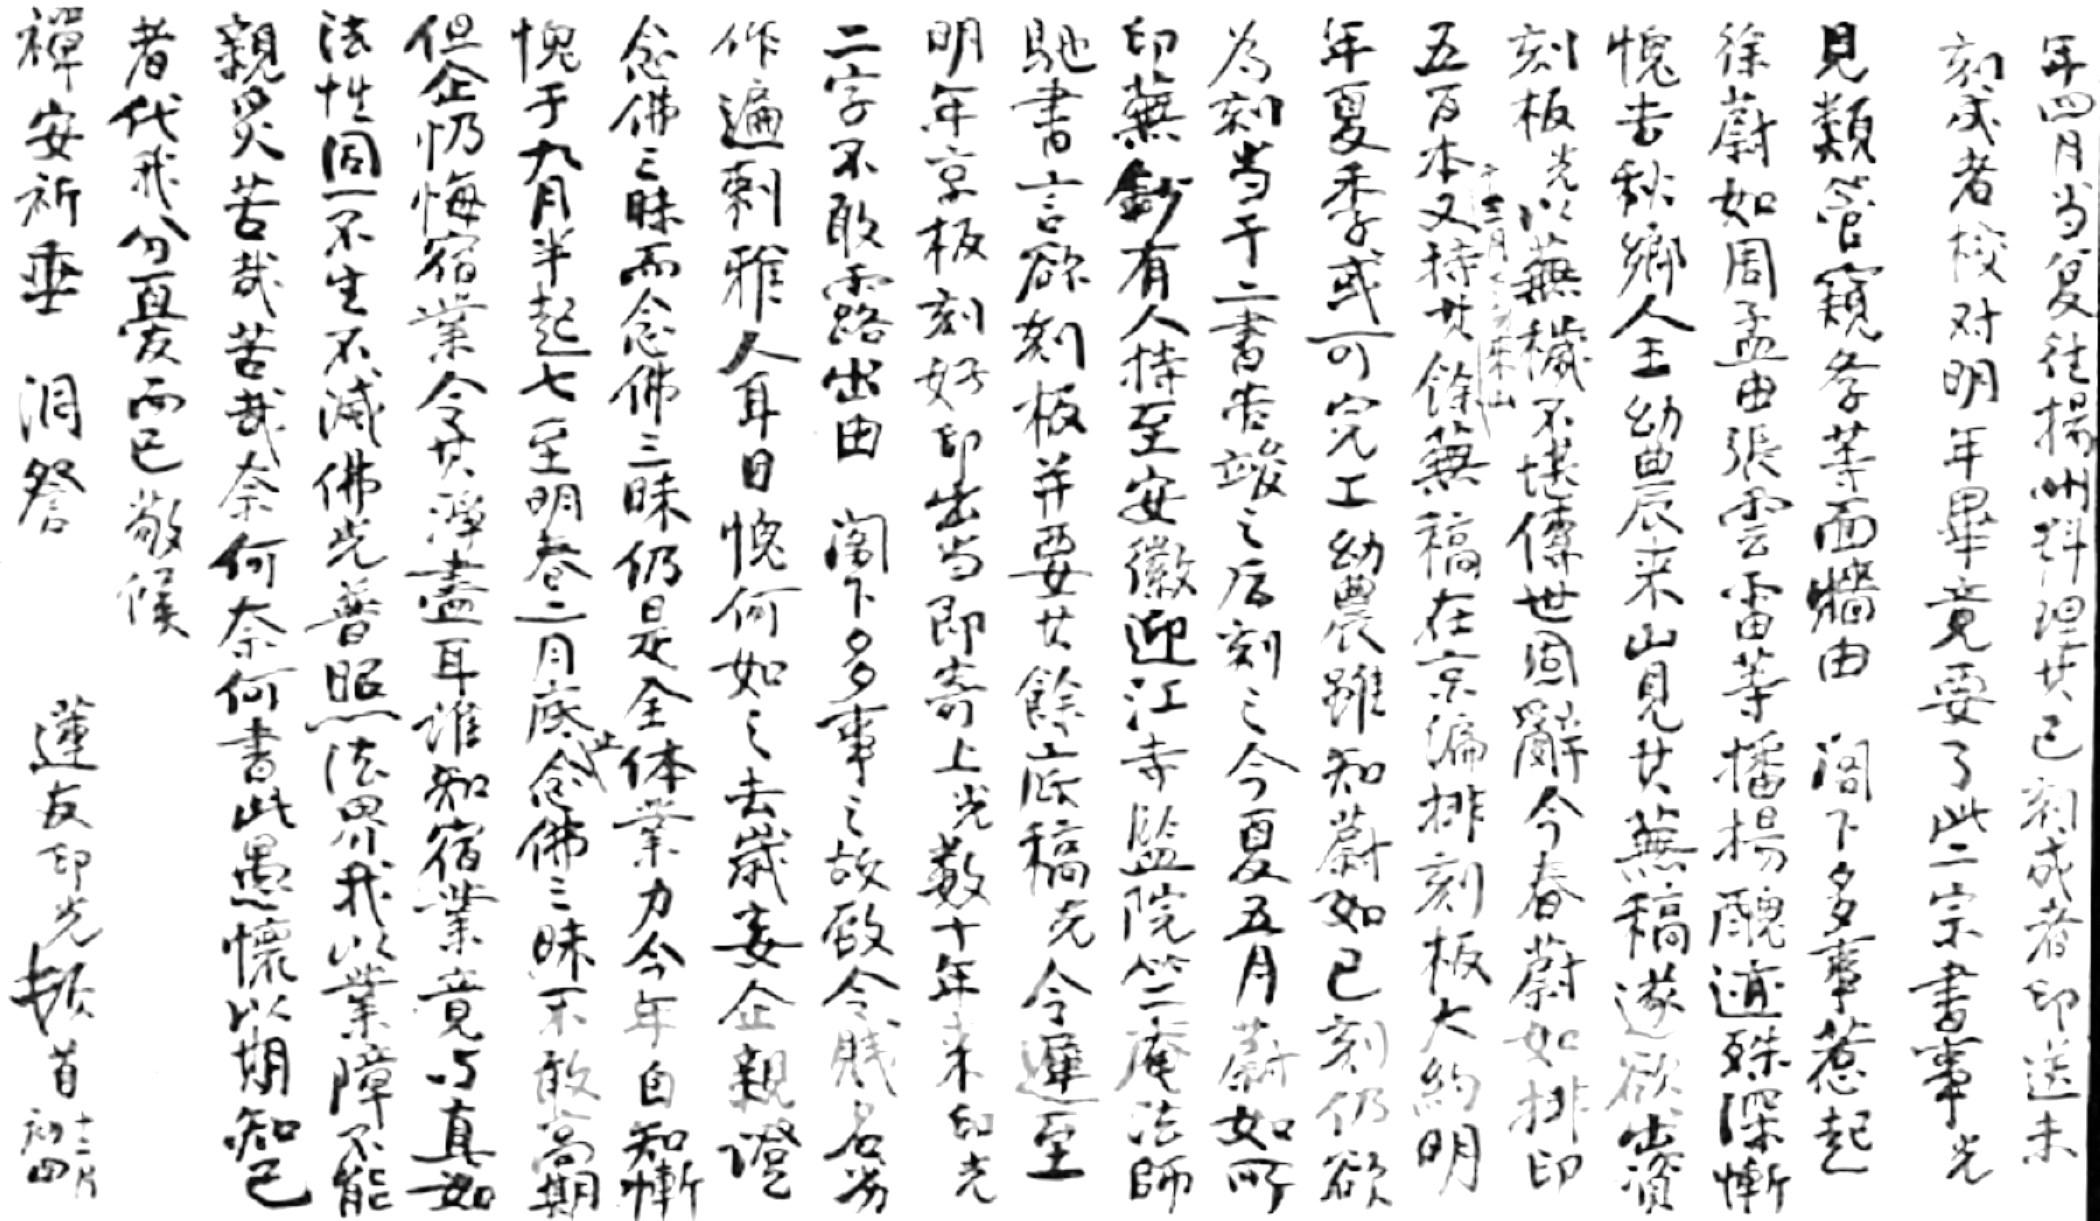 年四月当复往揚州料理其已刻成者印送未
刻成者校对明年畢竟要了此二宗書事光
見類管窺學等面牆由 閣下多事惹起
徐蔚如周孟由張雲雷等播揚醜迹殊深慚
愧去秋鄉人王幼農來山見其蕪稿遂欲出資
刻板光以蕪穢不堪傳世固辭今春蔚如排印
五百本又持其餘蕪稿在京編排刻板大約明
年夏季或可完工幼農雖知蔚如已刻仍欲
為刻当于二書告竣之后刻之今夏五月蔚如所
印蕪鈔有人持至安徽迎江寺監院竺庵法師
馳書言欲刻板并要其餘底稿光令遲至
明年京板刻好印出当即寄上光數十年來印光
二字不敢露出由 閣下多事之故致令賤名劣
作遍刺雅人耳目愧何如之去歲妄企親證
念佛三昧而念佛三昧仍是全体業力今年自知慚
愧于九月半起七至明春二月底止念佛三昧不敢高期
但企懺悔宿業令其淨盡耳誰知宿業竟与真如
法性同一不生不滅佛光普照法界我以業障不能
親炙苦哉苦哉奈何奈何書此愚懷以期知己
者代我分憂而已敬候
禪安祈垂 洞詧 蓮友印光頓首 十二月初四